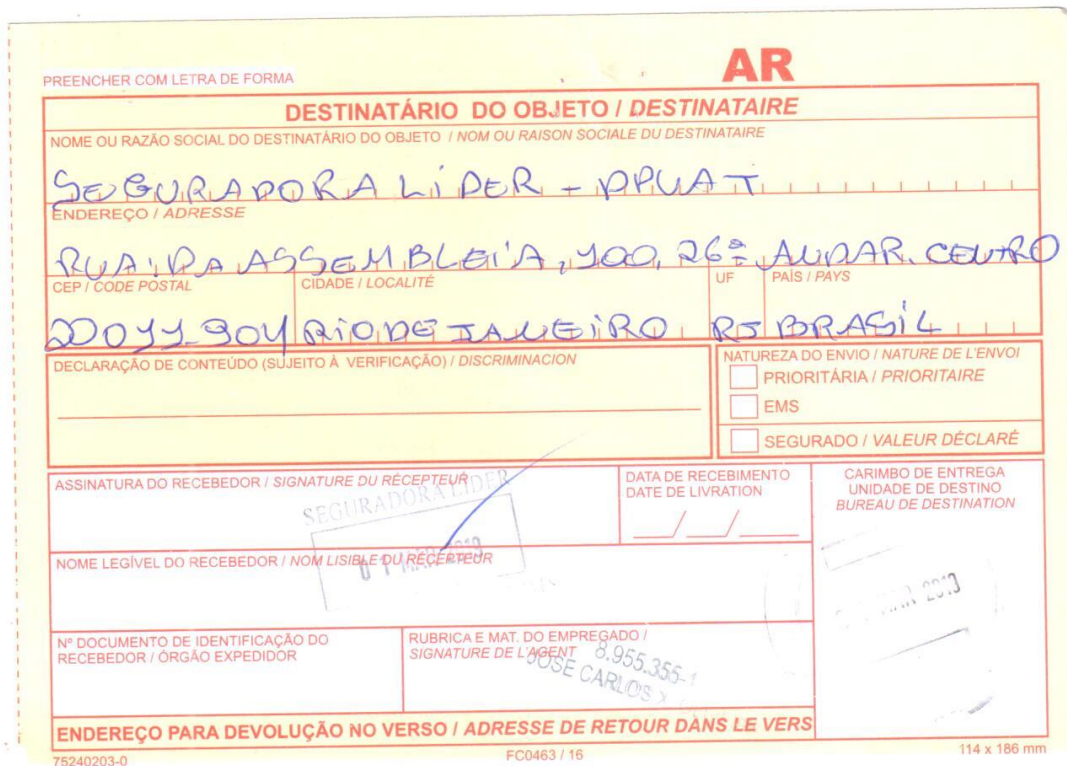 PREENCHER COM LETRA DE FORMA
AR
DESTINATÁRIO DO OBJETO / DESTINATAIRE
NOME OU RAZÃO SOCIAL DO DESTINATÁRIO DO OBJETO / NOM OU RAISON SOCIALE DU DESTINATAIRE
SEGURADORA LÍDER - DPVAT
ENDEREÇO / ADRESSE
RUA: DA ASSEMBLEIA, 100, 26º ANDAR. CENTRO
CEP / CODE POSTAL CIDADE / LOCALITÉ UF PAÍS / PAYS
20011-904 RIO DE JANEIRO RJ BRASIL
DECLARAÇÃO DE CONTEÚDO (SUJEITO À VERIFICAÇÃO) / DISCRIMINACION
NATUREZA DO ENVIO / NATURE DE L'ENVOI
PRIORITÁRIA / PRIORITAIRE
EMS
SEGURADO / VALEUR DÉCLARÉ
ASSINATURA DO RECEBEDOR / SIGNATURE DU RÉCEPTEUR
DATA DE RECEBIMENTO
DATE DE LIVRATION
CARIMBO DE ENTREGA
UNIDADE DE DESTINO
BUREAU DE DESTINATION
SEGURADORA LÍDER
NOME LEGÍVEL DO RECEBEDOR / NOM LISIBLE DU RÉCEPTEUR
01 MAR
MAR 2013
Nº DOCUMENTO DE IDENTIFICAÇÃO DO
RECEBEDOR / ÓRGÃO EXPEDIDOR
RUBRICA E MAT. DO EMPREGADO /
SIGNATURE DE L'AGENT
8.955.355-1
JOSE CARLOS
ENDEREÇO PARA DEVOLUÇÃO NO VERSO / ADRESSE DE RETOUR DANS LE VERS
75240203-0 FC0463 / 16 114 x 186 mm